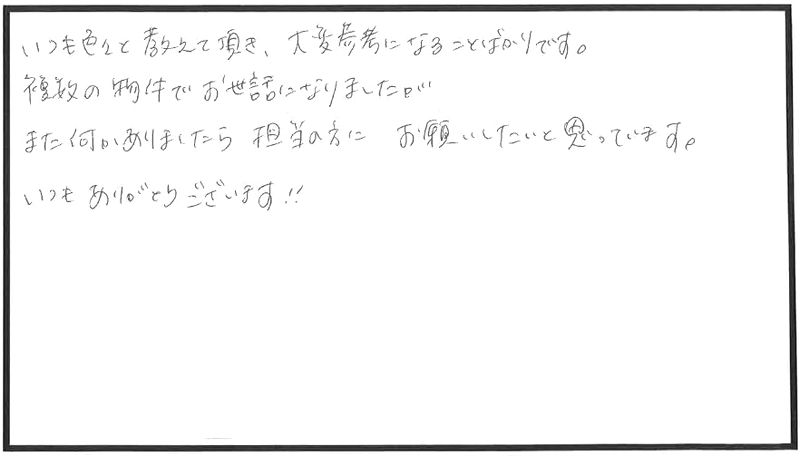 いつも色々と教えて頂き、大変参考になることばかりです。
複数の物件でお世話になりましたが
また何かありましたら担当の方に お願いしたいと思っています。
いつもありがとうございます!!